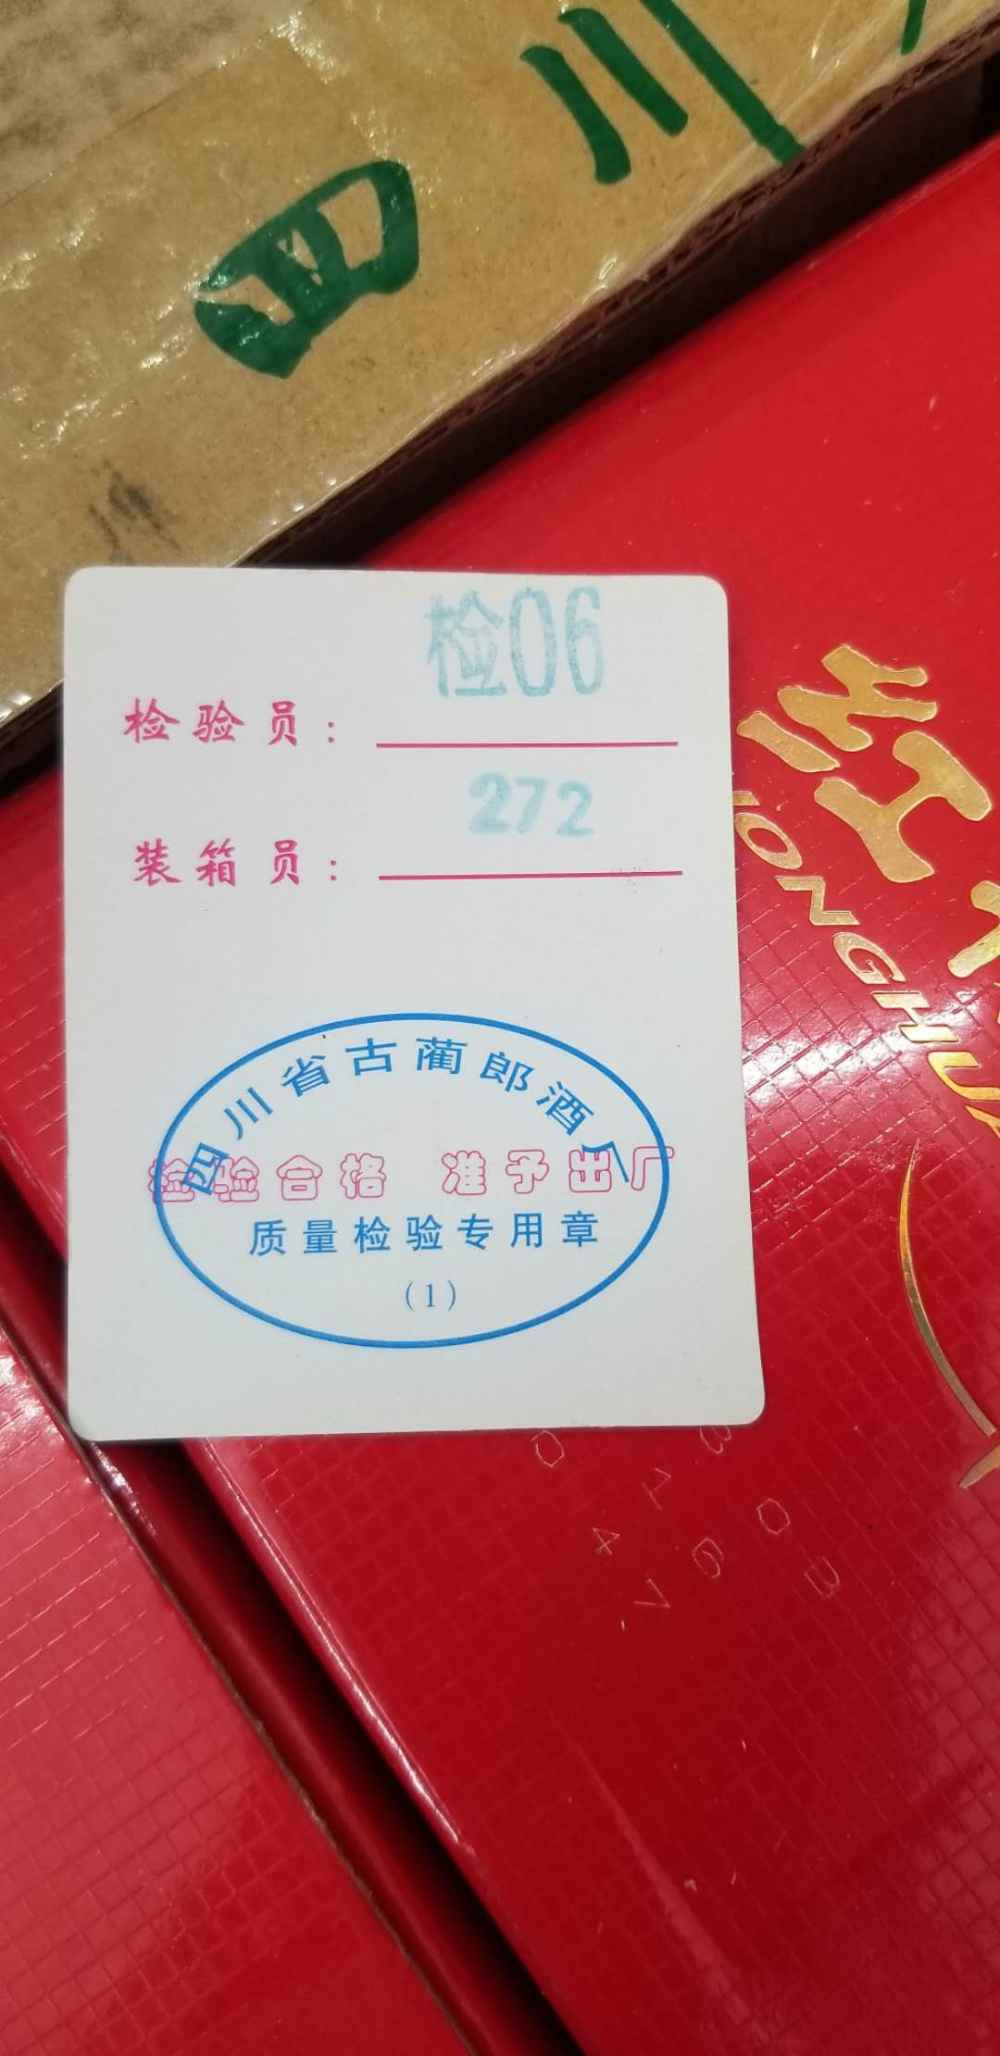 四川
检06
检验员：
272
装箱员：
四川省古蔺郎酒厂
检验合格 准予出厂
质量检验专用章
(1)
红
HONGHUA